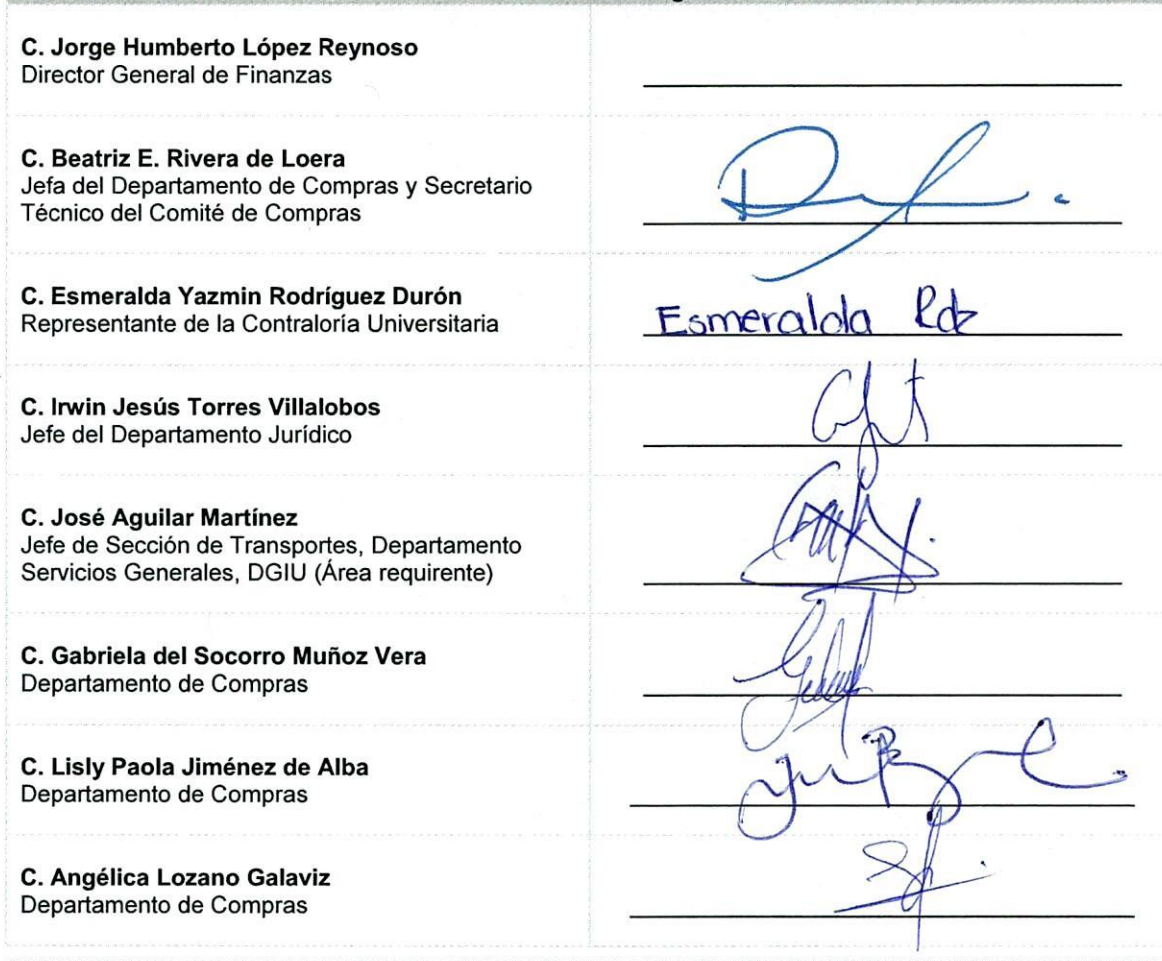 C. Jorge Humberto López Reynoso
Director General de Finanzas
C. Beatriz E. Rivera de Loera
Jefa del Departamento de Compras y Secretario
Técnico del Comité de Compras
C. Esmeralda Yazmin Rodríguez Durón
Representante de la Contraloría Universitaria
Esmeralda Rdz
C. Irwin Jesús Torres Villalobos
Jefe del Departamento Jurídico
C. José Aguilar Martínez
Jefe de Sección de Transportes, Departamento
Servicios Generales, DGIU (Área requirente)
C. Gabriela del Socorro Muñoz Vera
Departamento de Compras
C. Lisly Paola Jiménez de Alba
Departamento de Compras
C. Angélica Lozano Galaviz
Departamento de Compras